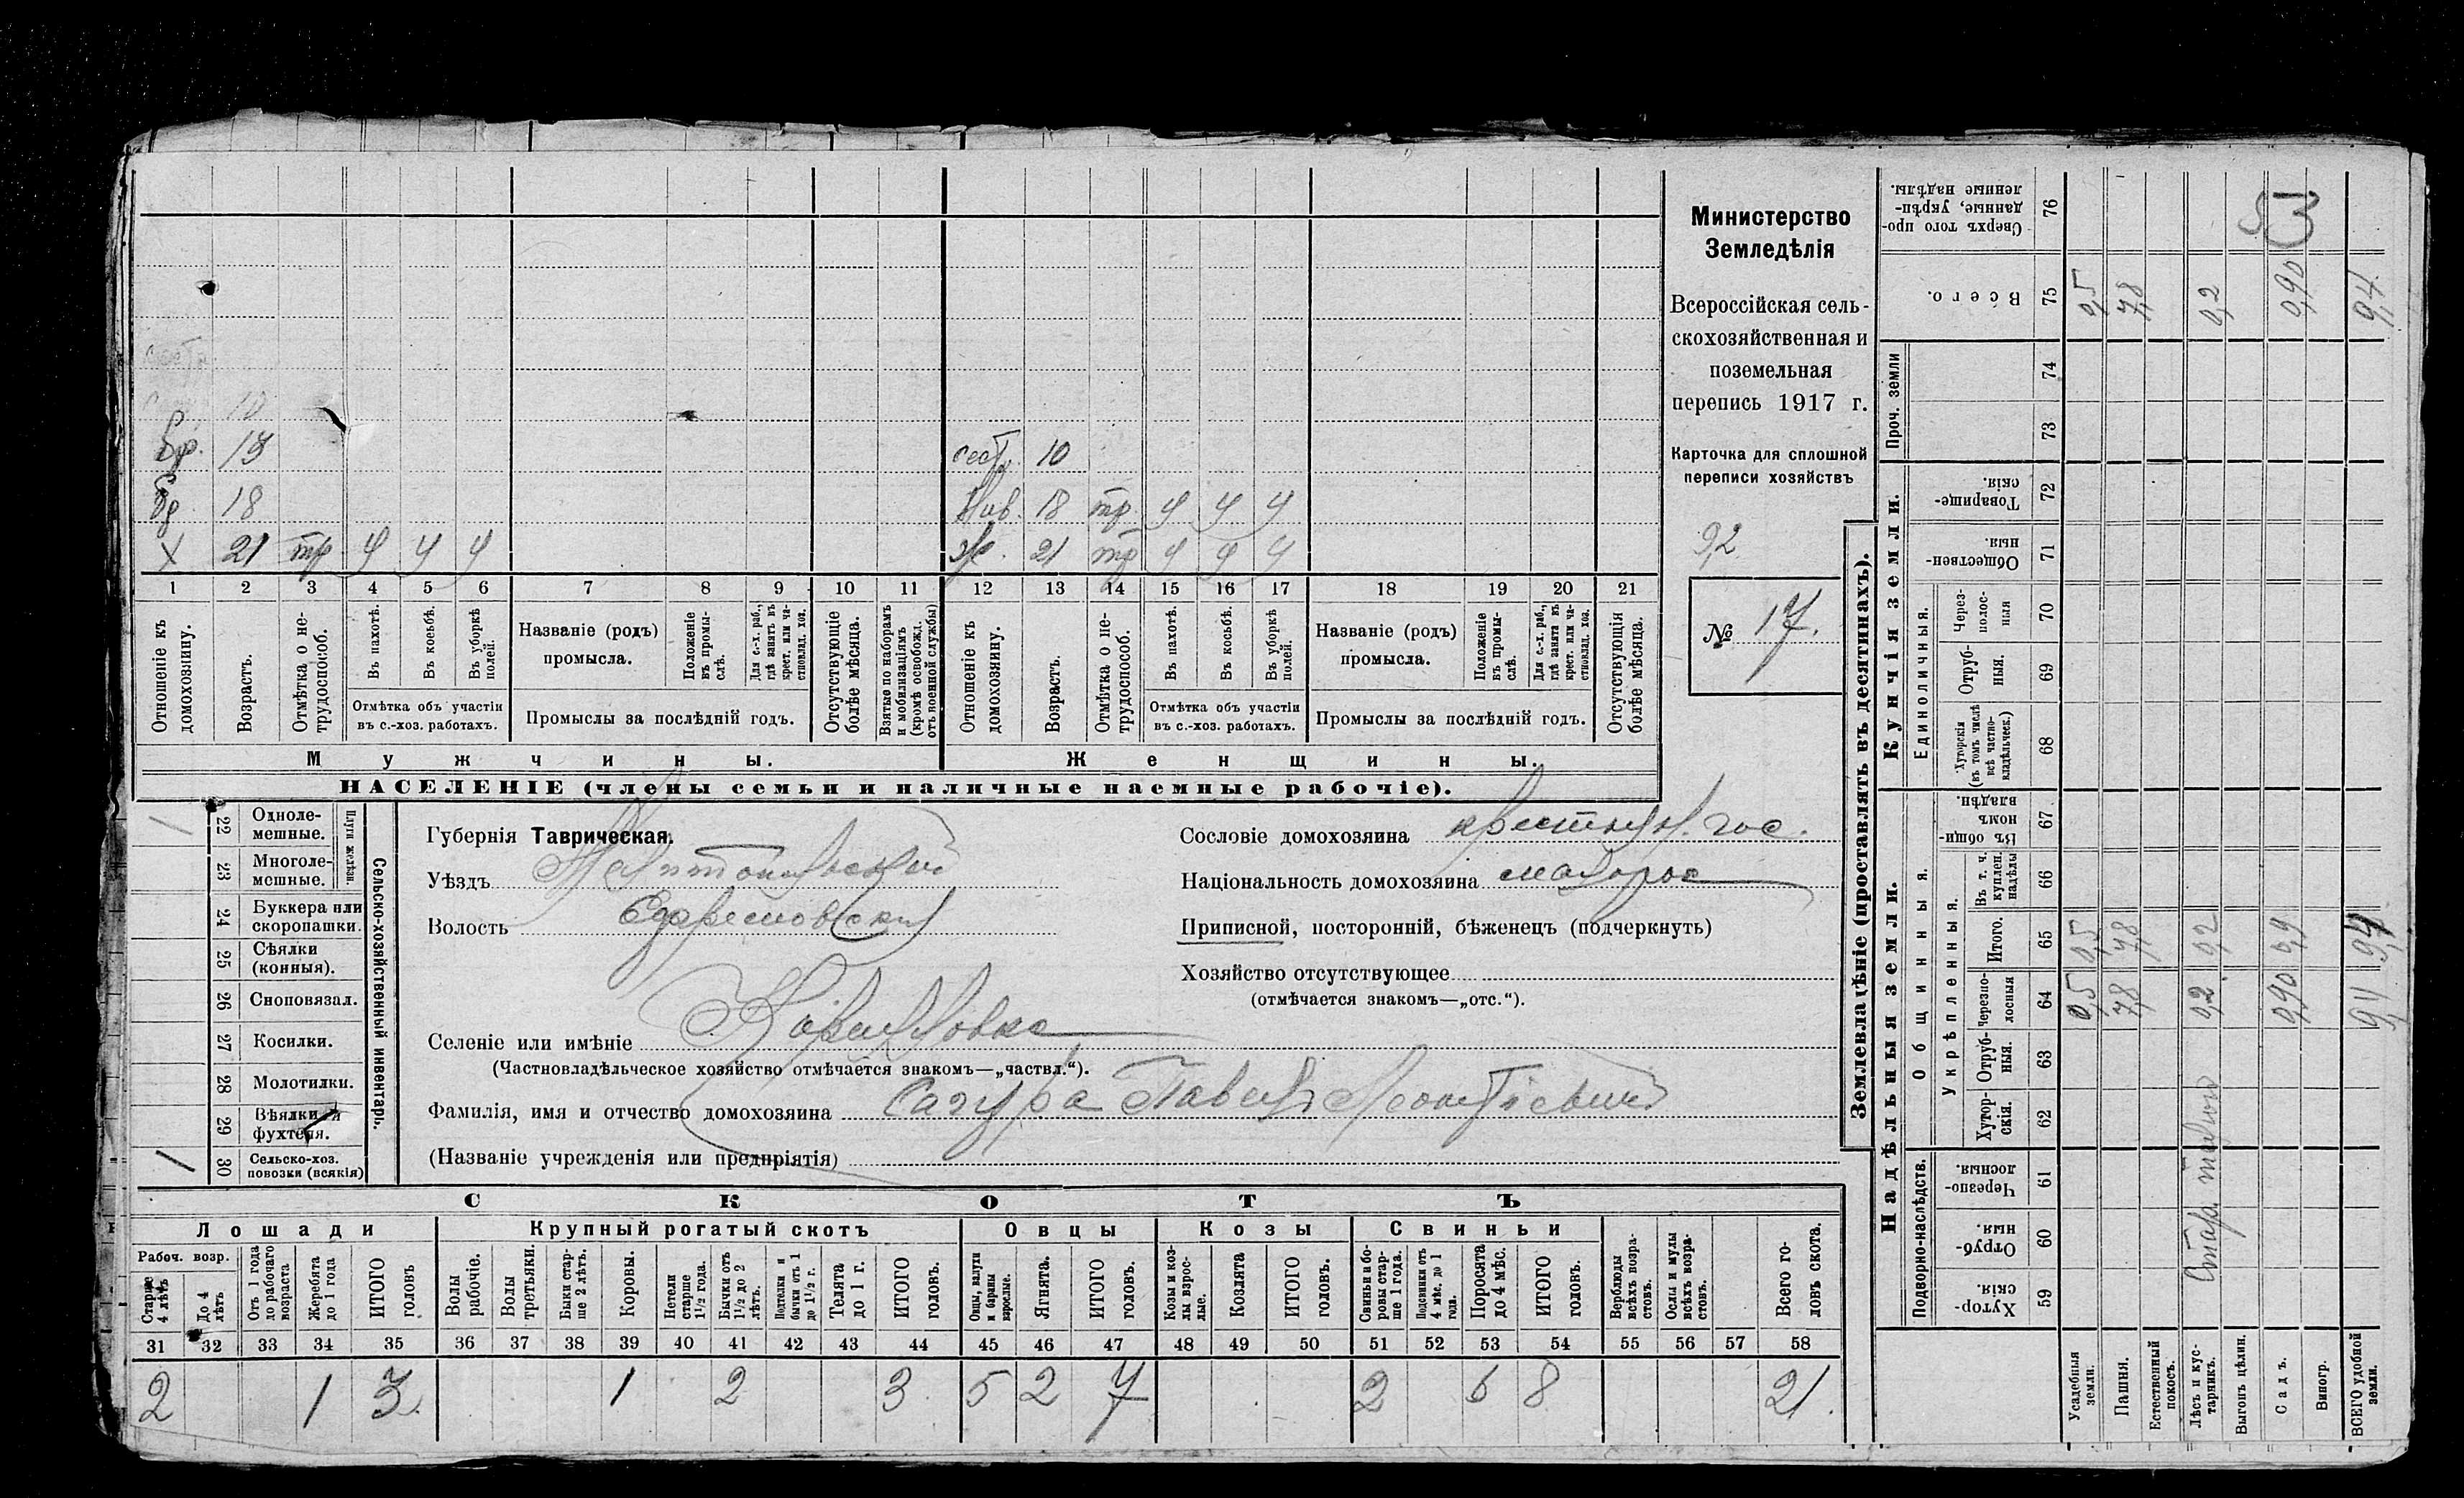 Министерство
Земледѣлія
Всероссійская сель-
скохозяйственная и
поземельная
перепись 1917 г.
Карточка для сплошной
переписи хозяйствъ
92
№ 17.
Бр. 13
18
Х 21 тр ч ч ч
сест. 10
18 тр. ч ч ч
ж. 21 тр ч ч ч
1 2 3 4 5 6 7 8 9 10 11 12 13 14 15 16 17 18 19 20 21
Отношеніе къ домохозяину.
Возрастъ.
Отмѣтка о не-трудоспособ.
Въ пахотѣ.
Въ косьбѣ.
Въ уборкѣ полей.
Отмѣтка объ участіи въ с.-хоз. работахъ.
Названіе (родъ) промысла.
Положеніе въ промы-слѣ.
Для с.-х. раб., гдѣ занятъ въ крест. или ча-стновлад. хоз.
Промыслы за послѣдній годъ.
Отсутствующіе болѣе мѣсяца.
Взятые по наборамъ и мобилизаціямъ (кромѣ освобожд. отъ военной службы)
Отношеніе къ домохозяину.
Возрастъ.
Отмѣтка о не-трудоспособ.
Въ пахотѣ.
Въ косьбѣ.
Въ уборкѣ полей.
Отмѣтка объ участіи въ с.-хоз. работахъ.
Названіе (родъ) промысла.
Положеніе въ промы-слѣ.
Для с.-х. раб., гдѣ занята въ крест. или ча-стновлад. хоз.
Промыслы за послѣдній годъ.
Отсутствующія болѣе мѣсяца.
Мужчины. Женщины.
НАСЕЛЕНІЕ (члены семьи и наличные наемные рабочіе).
22 Одноле-мешные.
23 Многоле-мешные.
Плуги желѣзн.
24 Буккера или скоропашки.
25 Сѣялки (конныя).
26 Сноповязал.
27 Косилки.
28 Молотилки.
29 Вѣялки и фухтеля.
30 Сельско-хоз. повозки (всякія)
Сельско-хозяйственный инвентарь.
Губернія Таврическая.
Уѣздъ Мелитопольскій
Волость Ефремовская
Селеніе или имѣніе
(Частновладѣльческое хозяйство отмѣчается знакомъ—„частвл.“).
Фамилія, имя и отчество домохозяина Сагура Павелъ Леонтіевичъ
(Названіе учрежденія или предпріятія)
Сословіе домохозяина крестьян. гос.
Національность домохозяина малорос
Приписной, посторонній, бѣженецъ (подчеркнуть)
Хозяйство отсутствующее
(отмѣчается знакомъ—„отс.“).
СКОТЪ
Лошади Крупный рогатый скотъ Овцы Козы Свиньи
Рабоч. возр.
Старше 4 лѣтъ
До 4 лѣтъ
Отъ 1 года до рабочаго возраста
Жеребята до 1 года
ИТОГО головъ
Волы рабочіе.
Волы третьяки.
Быки стар-ше 2 лѣтъ.
Коровы.
Нетели старше 1½ года.
Бычки отъ 1½ до 2 лѣтъ.
Подтелки и бычки отъ 1 до 1½ г.
Телята до 1 г.
ИТОГО головъ.
Овцы, валухи и бараны взрослые.
Ягнята.
ИТОГО головъ.
Козы и коз-лы взрос-лые.
Козлята
ИТОГО головъ.
Свиньи и бо-ровы стар-ше 1 года.
Подсвинки отъ 4 мѣс. до 1 года.
Поросята до 4 мѣс.
ИТОГО головъ.
Верблюды всѣхъ возра-стовъ.
Ослы и мулы всѣхъ возра-стовъ.
Всего го-ловъ скота.
31 32 33 34 35 36 37 38 39 40 41 42 43 44 45 46 47 48 49 50 51 52 53 54 55 56 57 58
2 1 3 1 2 3 5 2 7 2 6 8 21.
Землевладѣніе (проставлять въ десятинахъ).
Надѣльныя земли. Купчія земли.
Подворно-наслѣдств.
Общинныя.
Укрѣпленныя.
Единоличныя.
Проч. земли
Хутор-скія. 59
Отруб-ныя. 60
Черезпо-лосныя. 61
Хутор-скія. 62
Отруб-ныя. 63
Черезпо-лосныя 64
Итого. 65
Въ т. ч. куплен. надѣлы 66
Въ общи-номъ владѣн. 67
Хуторскія (въ томъ числѣ всѣ частно-владѣльческ.) 68
Отруб-ныя. 69
Через-полос-ныя 70
Обществен-ныя. 71
Товарище-скія. 72
73
74
Всего. 75
Сверхъ того про-данные, укрѣп-ленные надѣлы. 76
Усадебныя земли. 0,5 0,5 0,5
Пашня. 7,8 7,8 7,8
Естественный покосъ.
Лѣсъ и кус-тарникъ. 0,2 0,2 0,2
Выгонъ цѣлин.
Садъ. 0,90 0,9 0,90
Виногр.
ВСЕГО удобной земли. 9,4 9,4 9,4
53